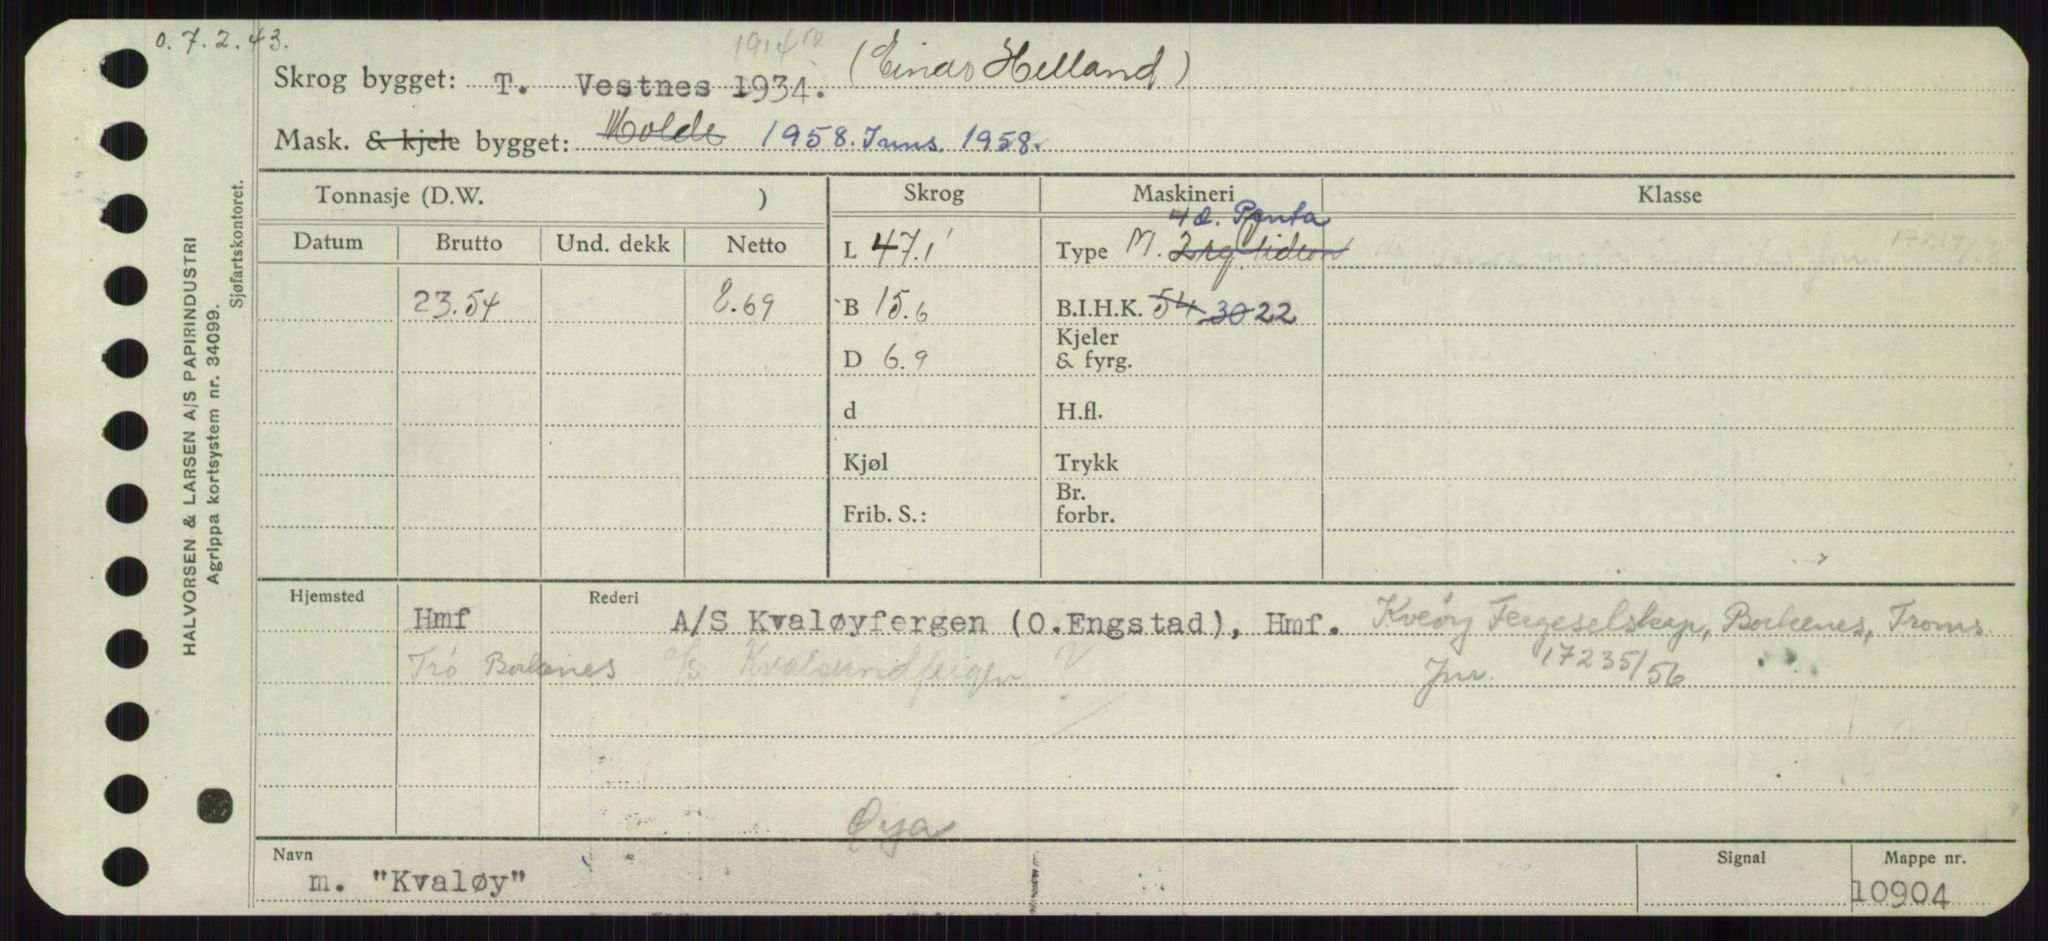 o. 7. 2. 43.
1914
Skrog bygget: T. Vestnes 1934. (Einar Helland)
Mask. & kjele bygget: Molde 1958. Inns. 1958.
Tonnasje (D.W. ) Skrog Maskineri Klasse
Datum Brutto Und. dekk Netto
4 d. Penta
L 47.1' Type M. 2 syl. Hidlon
23.54 8.69 B 15.6 B.I.H.K. 54 30 22
Kjeler
D 6.9 & fyrg.
d H.fl.
Kjøl Trykk
Br.
Frib. S.: forbr.
Hjemsted Rederi
Hmf A/S Kvaløyfergen (O.Engstad), Hmf. Kveøy Fergeselskap, Borkenes, Troms
Trö Borkenes a/s Kvalsundfergen ? Jnr. 17235/56
Øya
Navn Signal Mappe nr.
m. "Kvaløy" 10904
HALVORSEN & LARSEN A/S PAPIRINDUSTRI
Agrippa kortsystem nr. 34099.
Sjøfartskontoret.